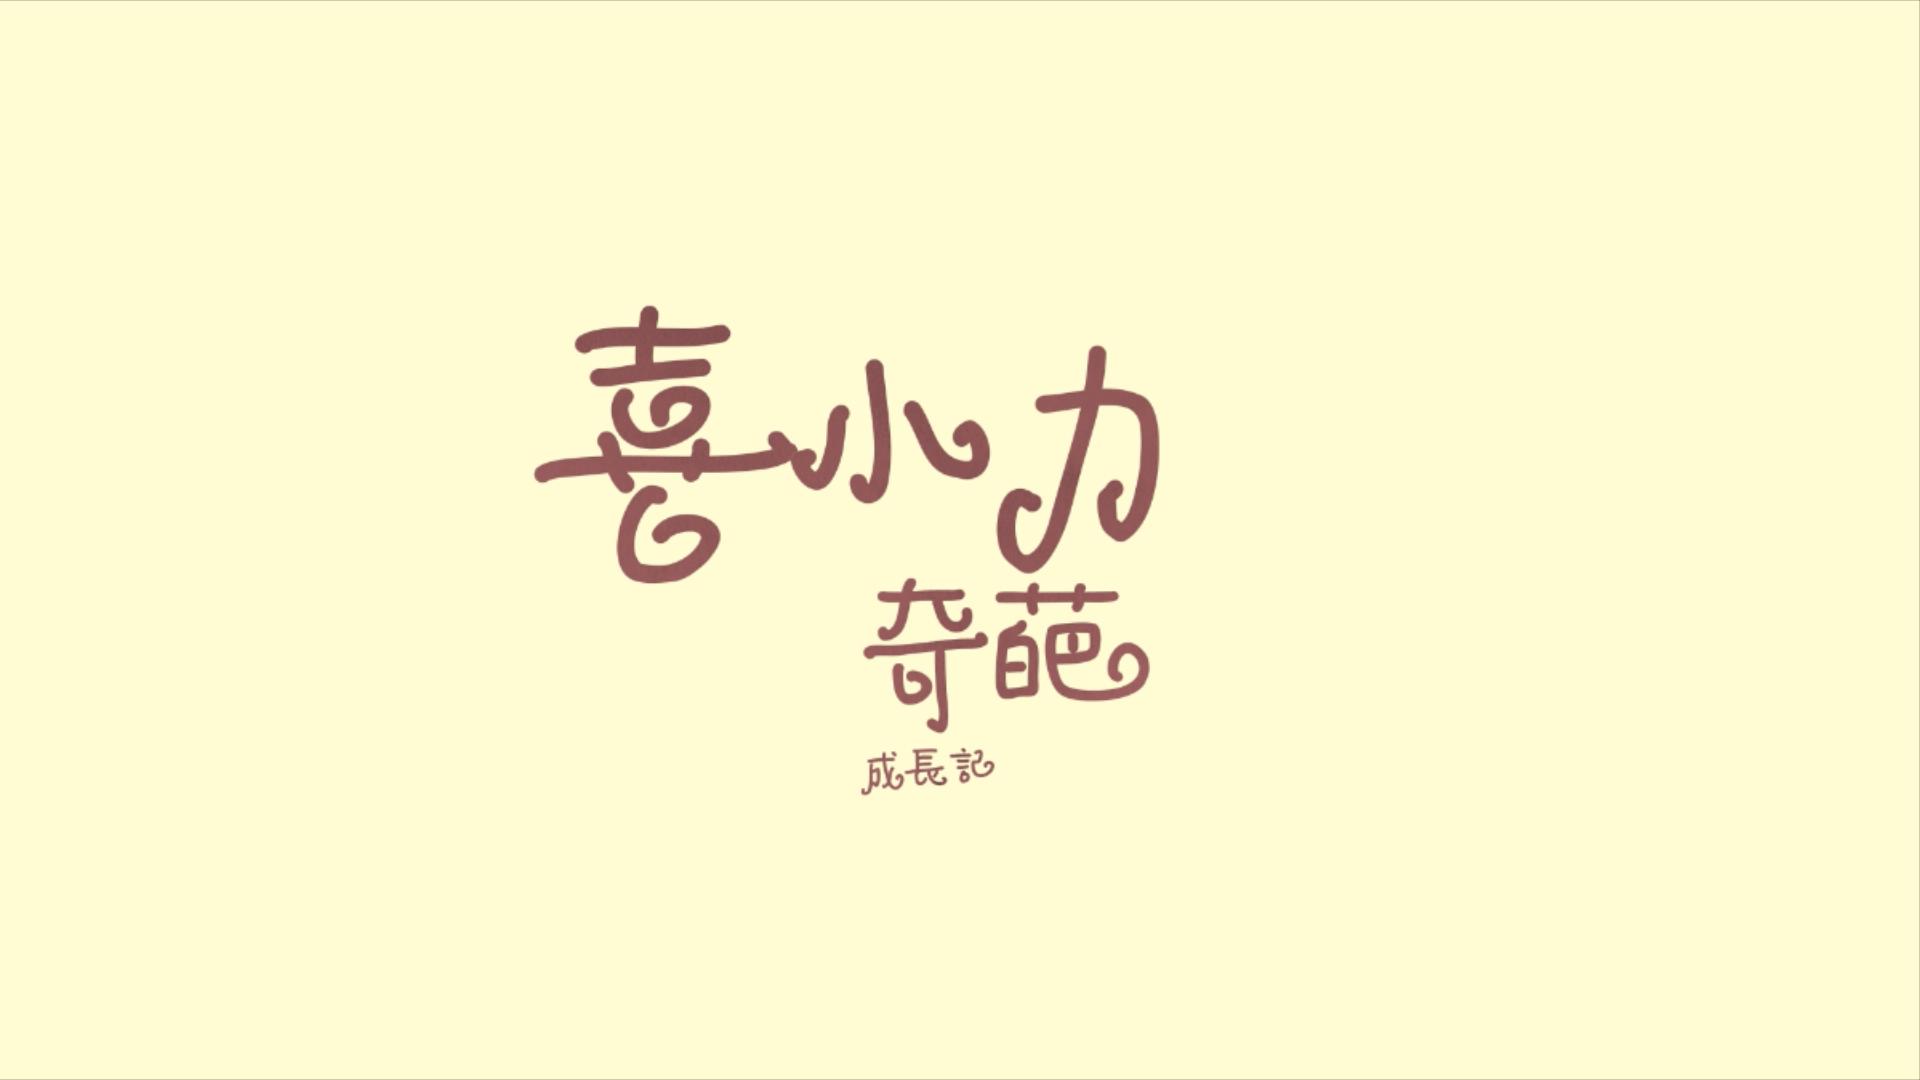 喜小力
奇葩
成長記